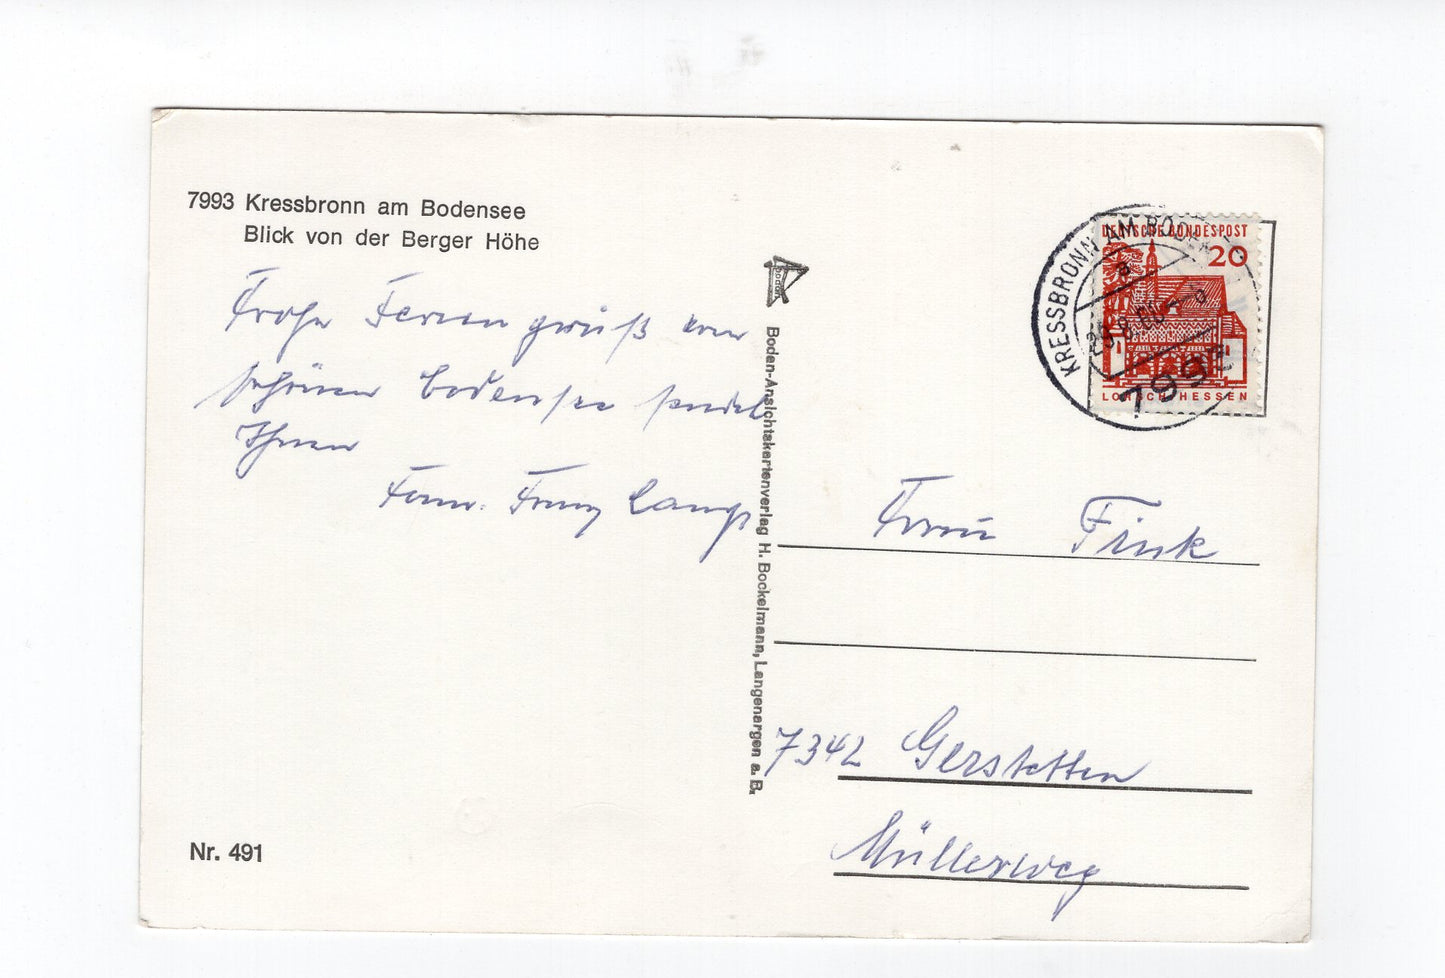 7993 Kressbronn am Bodensee
Blick von der Berger Höhe
Frohe Ferien grüße vom
schönen Bodensee sendet
Ihnen
Fam. Franz Lang
Nr. 491
bodan
Boden-Ansichtskartenverlag H. Bockelmann, Langenargen a. B.
KRESSBRONN AM BODEN
a
7993
DEUTSCHE BUNDESPOST
20
LORSCH/HESSEN
Frau Fink
7342 Gerstetten
Müllerweg